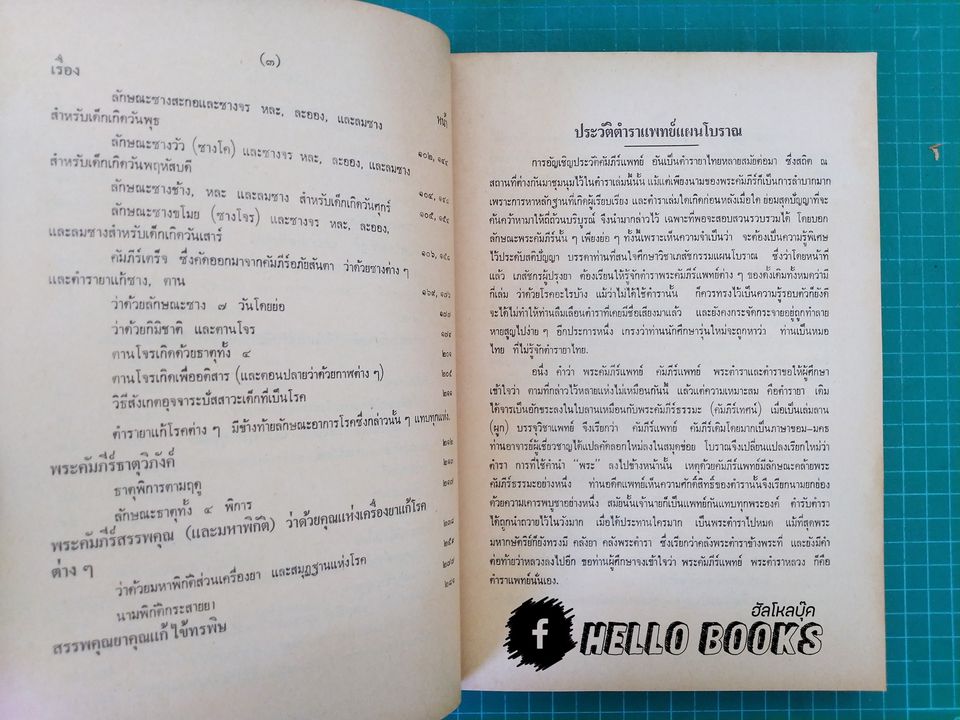 (๓)
เรื่อง
หน้า
ลักษณะซางสะกอและซางจร หละ, ละออง, และลมซาง
สำหรับเด็กเกิดวันพุธ
ลักษณะซางวัว (ซางโค) และซางจร หละ, ละออง, และลมซาง
สำหรับเด็กเกิดวันพฤหัสบดี
ลักษณะซางช้าง, หละ และลมซาง สำหรับเด็กเกิดวันศุกร์
ลักษณะซางขโมย (ซางโจร) และซางจร หละ, ละออง,
และลมซางสำหรับเด็กเกิดวันเสาร์
คัมภีร์เตร็จ ซึ่งคัดออกมาจากคัมภีร์อภัยสันตา ว่าด้วยซางต่าง ๆ
และตำรายาแก้ซาง, ตาน
ว่าด้วยลักษณะซาง ๗ วันโดยย่อ
ว่าด้วยกิมิชาติ และตานโจร
ตานโจรเกิดด้วยธาตุทั้ง ๔
ตานโจรเกิดเพื่ออติสาร (และตอนปลายว่าด้วยกาฬต่าง ๆ)
วิธีสังเกตอุจจาระปัสสาวะเด็กที่เป็นโรค
ตำรายาแก้โรคต่าง ๆ มีข้างท้ายลักษณะอาการโรคซึ่งกล่าวนั้น ๆ แทบทุกแห่ง.
พระคัมภีร์ธาตุวิภังค์
ธาตุพิการตามฤดู
ลักษณะธาตุทั้ง ๔ พิการ
พระคัมภีร์สรรพคุณ (และมหาพิกัติ) ว่าด้วยคุณแห่งเครื่องยาแก้โรค
ต่าง ๆ
ว่าด้วยมหาพิกัติส่วนเครื่องยา และสมุฏฐานแห่งโรค
นามพิกัติกระสายยา
สรรพคุณยาคุณแก้ไข้ทรพิษ
ประวัติตำราแพทย์แผนโบราณ
การอัญเชิญประวัติคัมภีร์แพทย์ อันเป็นตำรายาไทยหลายสมัยต่อมา ซึ่งสถิต ณ
สถานที่ต่างกันมาชุมนุมไว้ในตำราเล่มนี้นั้น แม้แต่เพียงนามของพระคัมภีร์ก็เป็นการลำบากมาก
เพราะการหาหลักฐานที่เกิดผู้เรียบเรียง และตำราเล่มใดเกิดก่อนหลังเมื่อใด ย่อมสุดปัญญาที่จะ
ค้นคว้าหามาให้ถี่ถ้วนบริบูรณ์ จึงนำมากล่าวไว้ เฉพาะที่พอจะสอบสวนรวบรวมได้ โดยบอก
ลักษณะพระคัมภีร์นั้น ๆ เพียงย่อ ๆ ทั้งนี้เพราะเห็นความจำเป็นว่า จะต้องเป็นความรู้พิเศษ
ไว้ประดับสติปัญญา บรรดาท่านที่สนใจศึกษาวิชาเภสัชกรรมแผนโบราณ ซึ่งว่าโดยหน้าที่
แล้ว เภสัชกรผู้ปรุงยา ต้องเรียนให้รู้จักตำราพระคัมภีร์แพทย์ต่าง ๆ ของดั้งเดิมทั้งหมดว่ามี
กี่เล่ม ว่าด้วยโรคอะไรบ้าง แม้ว่าไม่ได้ใช้ตำรานั้น ก็ควรทรงไว้เป็นความรู้รอบตัวก็ยังดี
จะได้ไม่ทำให้ท่านลืมเลือนตำราที่เคยมีชื่อเสียงมาแล้ว และยังคงกระจัดกระจายอยู่ถูกทำลาย
หายสูญไปง่าย ๆ อีกประการหนึ่ง เกรงว่าท่านนักศึกษารุ่นใหม่จะถูกหาว่า ท่านเป็นหมอ
ไทย ที่ไม่รู้จักตำรายาไทย.
อนึ่ง คำว่า พระคัมภีร์แพทย์ คัมภีร์แพทย์ พระตำราและตำราขอให้ผู้ศึกษา
เข้าใจว่า ตามที่กล่าวไว้หลายแห่งไม่เหมือนกันนี้ แล้วแต่ความเหมาะสม คือตำรายา เดิม
ได้จารเป็นอักขระลงในใบลานเหมือนกับพระคัมภีร์ธรรมะ (คัมภีร์เทศน์) เมื่อเป็นเล่มลาน
(ผูก) บรรจุวิชาแพทย์ จึงเรียกว่า คัมภีร์แพทย์ คัมภีร์เดิมโดยมากเป็นภาษาขอม-มคธ
ท่านอาจารย์ผู้เชี่ยวชาญได้แปลคัดลอกใหม่ลงในสมุดข่อย โบราณจึงเปลี่ยนแปลงเรียกใหม่ว่า
ตำรา การที่ใช้คำนำ “พระ” ลงไปข้างหน้านั้น เหตุด้วยคัมภีร์แพทย์มีลักษณะคล้ายพระ
คัมภีร์ธรรมะอย่างหนึ่ง ท่านอดีตแพทย์เห็นความศักดิ์สิทธิ์ของตำรานั้นจึงเรียกนามยกย่อง
ด้วยความเคารพบูชาอย่างหนึ่ง สมัยนั้นเจ้านายก็เป็นแพทย์กันแทบทุกพระองค์ ตำรับตำรา
ได้ถูกนำถวายไว้ในวังมาก เมื่อได้ประทานใครมาก เป็นพระตำราไปหมด แม้ที่สุดพระ
มหากษัตริย์ก็ยังทรงมี คลังยา คลังพระตำรา ซึ่งเรียกว่าคลังพระตำราข้างพระที่ และยังมีคำ
ต่อท้ายว่าหลวงลงไปอีก ขอท่านผู้ศึกษาจงเข้าใจว่า พระคัมภีร์แพทย์ พระตำราหลวง ก็คือ
ตำราแพทย์นั่นเอง.
ฮัลโหลบุ๊ค
f HELLO BOOKS